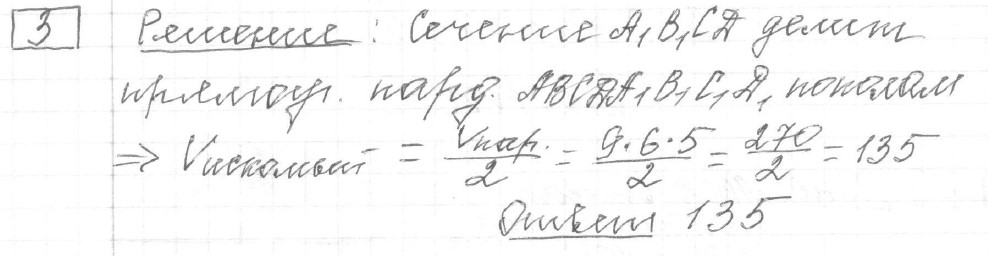 3 Решение: Сечение A₁B₁CD делит
прямоуг. пард. ABCDA₁B₁C₁D₁ пополам
=> Vискомый = Vпар./2 = 9·6·5/2 = 270/2 = 135
Ответ 135